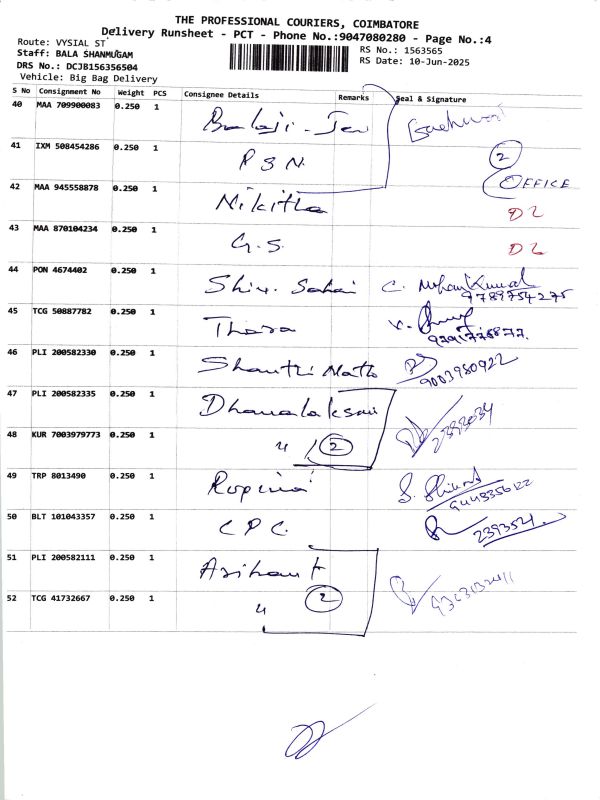 THE PROFESSIONAL COURIERS, COIMBATORE
Delivery Runsheet - PCT - Phone No.:9047080280 - Page No.:4
Route: VYSIAL ST
Staff: BALA SHANMUGAM
DRS No.: DCJB156356504
Vehicle: Big Bag Delivery
RS No.: 1563565
RS Date: 10-Jun-2025
S No Consignment No Weight PCS Consignee Details Remarks Seal & Signature
40 MAA 709900083 0.250 1 Balaji
41 IXM 508454286 0.250 1 P S N. 2
OFFICE
42 MAA 945558878 0.250 1 Nikitha D2
43 MAA 870104234 0.250 1 G.S. D2
44 PON 4674402 0.250 1 Shiv. Sahai C. Mohan Kumar
9789754275
45 TCG 50887782 0.250 1 Thara
46 PLI 200582330 0.250 1 Shanthi Math 9003980922
47 PLI 200582335 0.250 1 Dhanalaksmi
48 KUR 7003979773 0.250 1 " 2 2392034
49 TRP 8013490 0.250 1
50 BLT 101043357 0.250 1 C P C. 2393521
51 PLI 200582111 0.250 1 Arihant
52 TCG 41732667 0.250 1 " 2